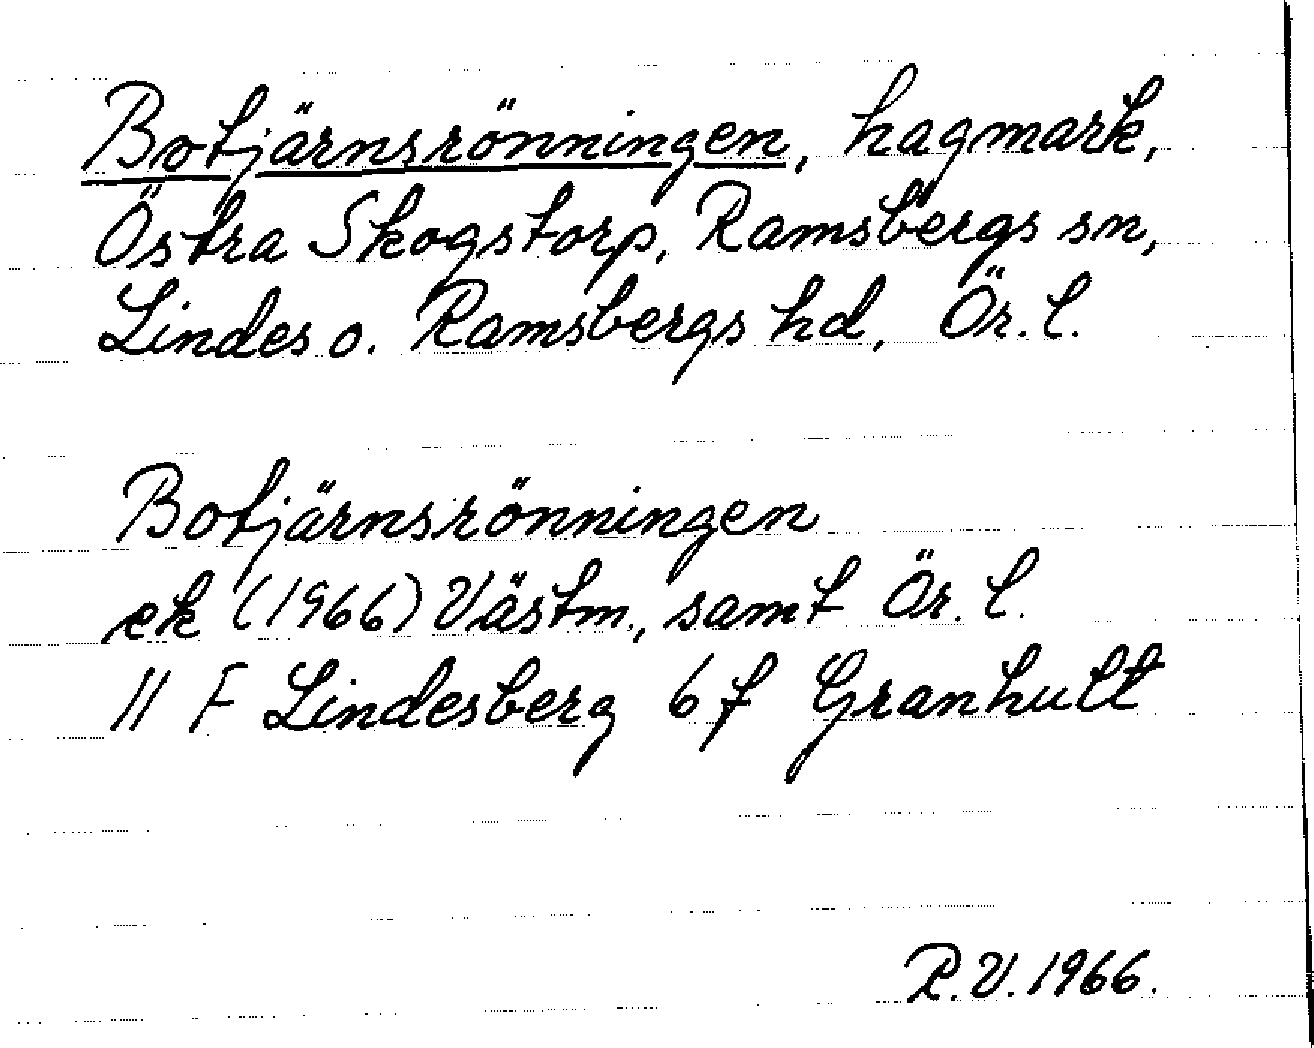 Botjärnsrönningen, hagmark,
Östra Skogstorp, Ramsbergs sn,
Lindes o. Ramsbergs hd, Ör. l.
Botjärnsrönningen
ek (1966) Västm., samt Ör. l.
11 F Lindesberg 6 f Granhult
R.V. 1966.